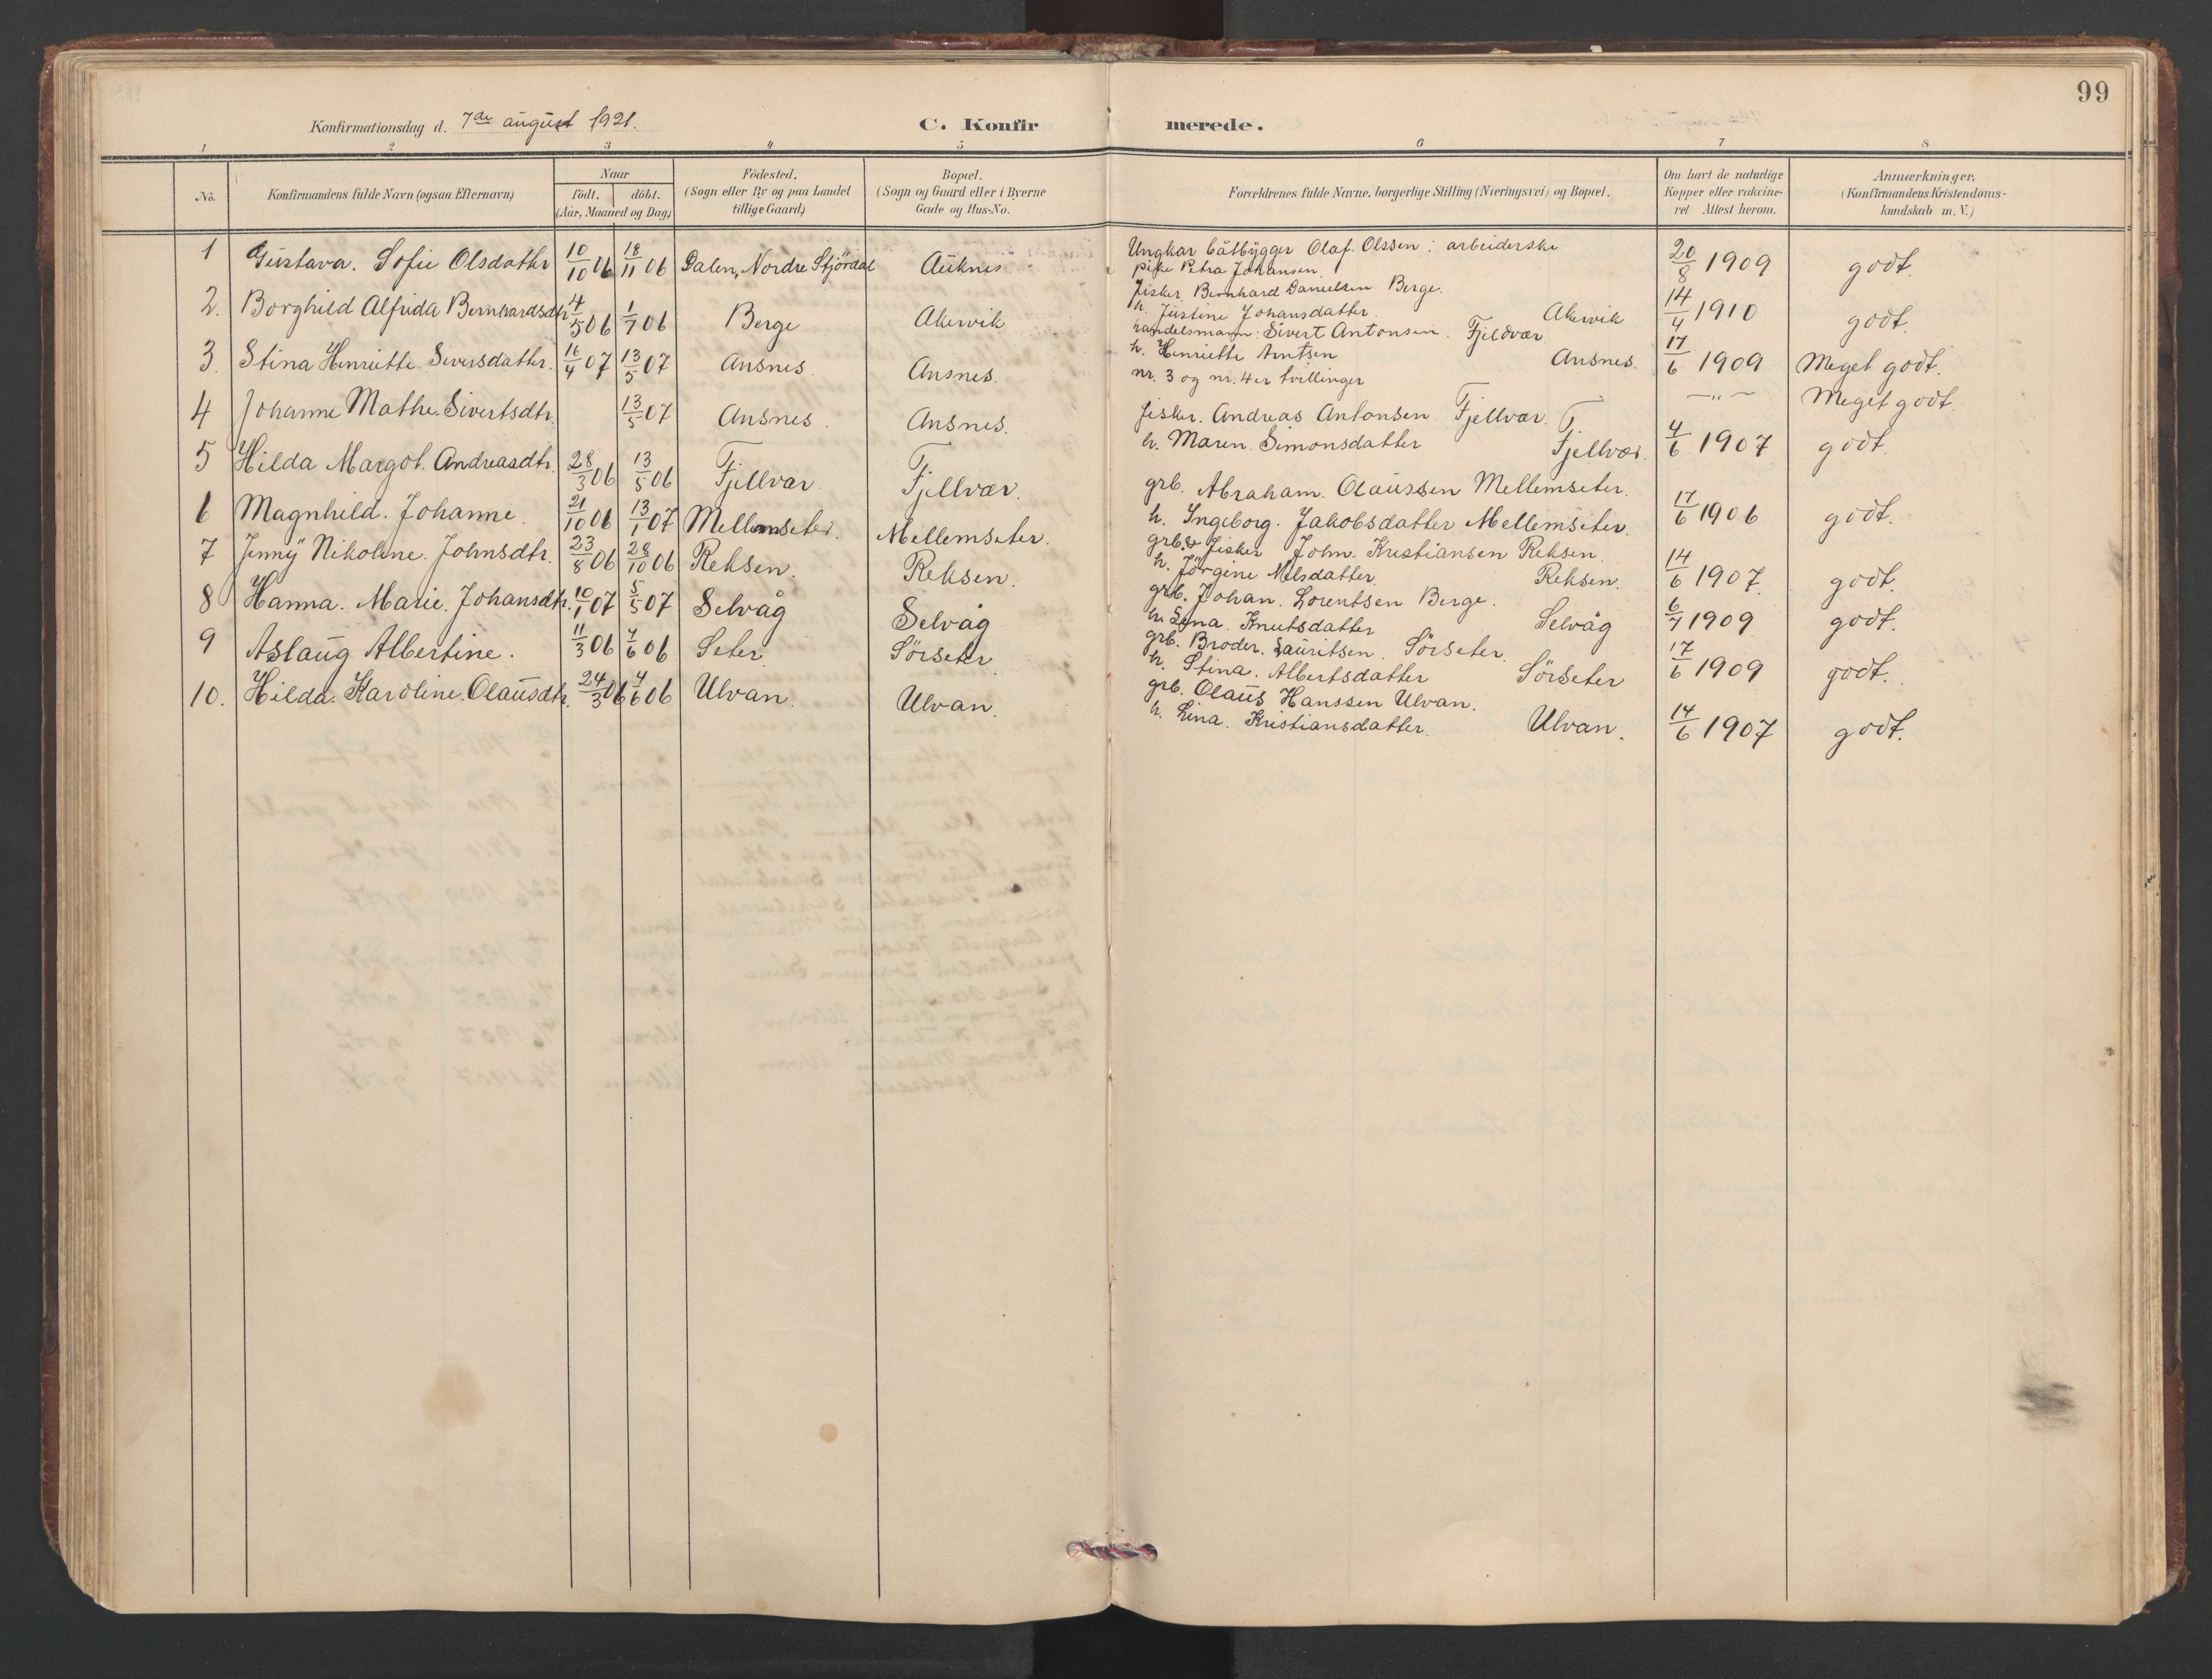 99
Konfirmationsdag d. 7de august 1921. C. Konfirmerede.
1 2 3 4 5 6 7 8
No. Konfirmandens fulde Navn (ogsaa Efternavn) Naar födt. döbt. (Aar, Maaned og Dag) Födested. (Sogn eller By og paa Landet tillige Gaard) Bopæl. (Sogn og Gaard eller i Byerne Gade og Hus-No. Forældrenes fulde Navne, borgerlige Stilling (Næringsvei) og Bopæl. Om havt de naturlige Kopper eller vakcineret Attest herom. Anmærkninger. (Konfirmandens Kristendomskundskab m. V.)
1 Gustava. Sofie Olsdatter 10/10 06 18/11 06 Dalen, Nordre Stjördal Auknes Ungkar båtbygger Olaf. Olssen: arbeiderske 20/8 1909 godt.
pike Petra Johansen.
2. Borghild Alfrida Bernhardsdtr 4/5 06 1/7 06 Berge Akervik fisker. Bernhard Danielsen Berge. 14/4 1910 godt.
h. Justine Johansdatter. Akervik
3. Stina Henriette Siversdatter. 16/4 07 13/5 07 Ansnes. Ansnes. handelsmann: Sivert Antonsen. Fjeldvær 17/6 1909 Meget godt.
h. Henriette Arntsen Ansnes.
nr. 3 og nr. 4 er tvillinger
4 Johanne Mathe. Sivertsdtr. 13/5 07 Ansnes. Ansnes. —„— Meget godt.
5 Hilda Margot. Andreasdtr. 28/3 06 13/5 06 Fjellvær. Fjellvær. fisker. Andreas Antonsen Fjellvær. 4/6 1907 godt.
h. Maren. Simonsdatter Fjellvær.
6 Magnhild. Johanne. 21/10 06 13/1 07 Mellemseter. Mellemseter. grb. Abraham. Olaussen Mellemseter. 17/6 1906 godt.
h. Ingeborg. Jakobsdatter Mellemseter.
7 Jenny Nikoline. Johnsdtr. 23/8 06 28/10 06 Reksen. Reksen. grb. & fisker John. Kristiansen Reksen. 14/6 1907. godt.
h. Jörgine Nilsdatter. Reksen.
8 Hanna. Marie. Johansdtr. 10/1 07 5/5 07 Selvåg Selvåg grb. Johan. Lorentsen Berge. 6/7 1909 godt.
h. Knutsdatter Selvåg
9 Aslaug Albertine. 11/3 06 4/6 06 Seter. Sörseter. grb. Broder. Lauritsen. Sörseter. 17/6 1909 godt.
h. Stina. Albertsdatter Sörseter
10. Hilda. Karoline. Olausdtr. 24/3 06 4/6 06 Ulvan. Ulvan. grb. Olaus Hanssen Ulvan. 14/6 1907 godt.
h. Lina. Kristiansdatter. Ulvan.